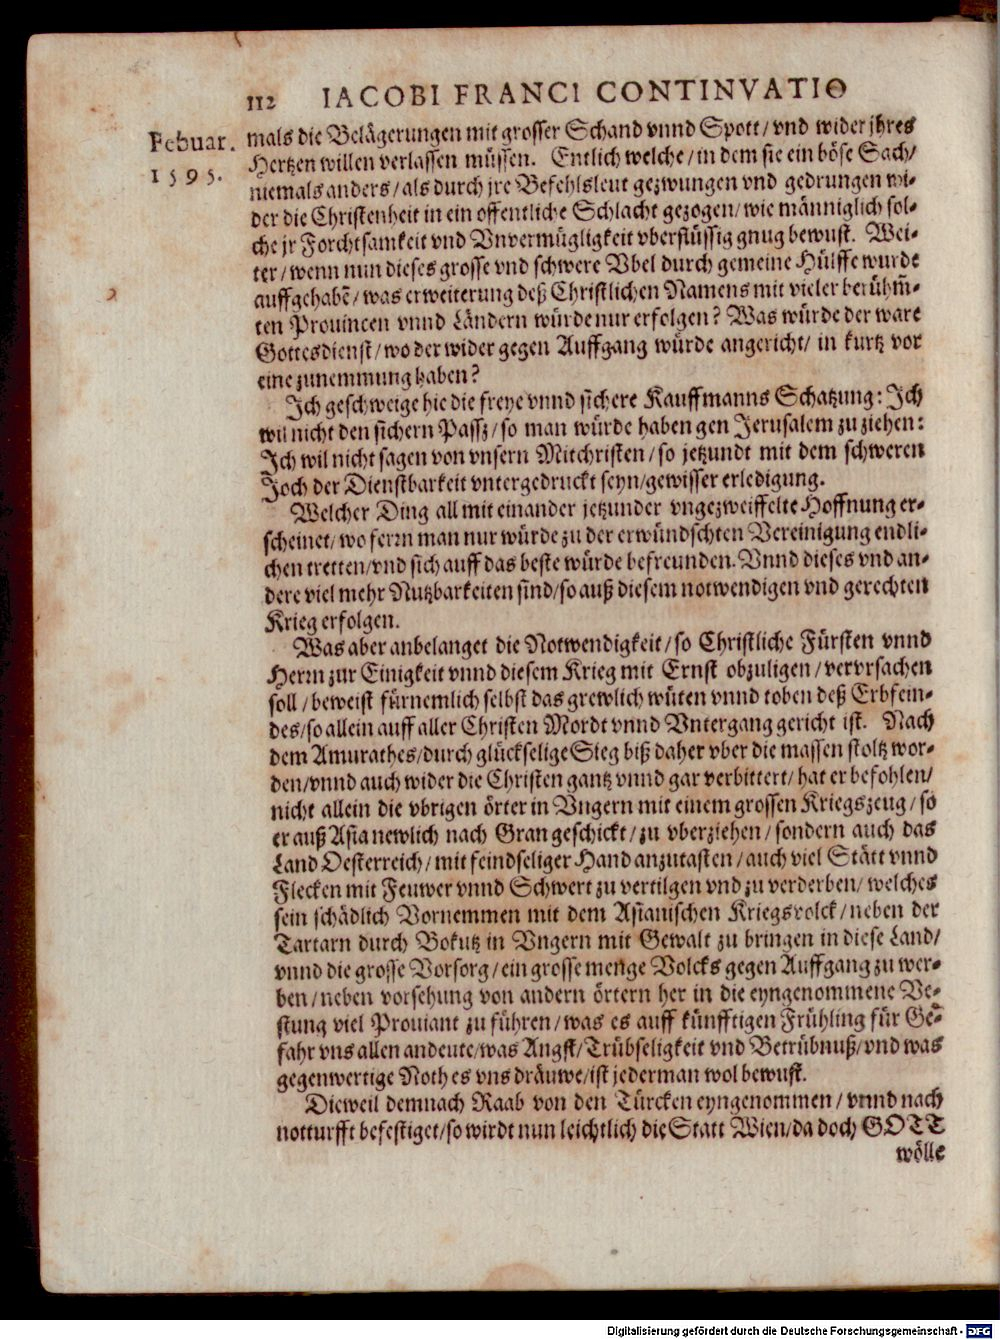 112 IACOBI FRANCI CONTINVATIO
Febuar.
1595.
mals die Belägerungen mit grosser Schand vnnd Spott/ vnd wider jhres
Hertzen willen verlassen müssen. Entlich welche/ in dem sie ein böse Sach/
niemals anders/ als durch jre Befehlsleut gezwungen vnd gedrungen wi-
der die Christenheit in ein offentliche Schlacht gezogen/ wie männiglich sol-
che jr Forchtsamkeit vnd Vnvermügligkeit vberflüssig gnug bewust. Wei-
ter/ wenn nun dieses grosse vnd schwere Vbel durch gemeine Hülffe wurde
auffgehabē/ was erweiterung deß Christlichen Namens mit vieler berühm̄-
ten Prouincen vnnd Ländern würde nur erfolgen? Was würde der ware
Gottesdienst/ wo der wider gegen Auffgang würde angericht/ in kurtz vor
eine zunemmung haben?
Ich geschweige hie die freye vnnd sichere Kauffmanns Schatzung: Ich
wil nicht den sichern Passz/ so man würde haben gen Jerusalem zu ziehen:
Ich wil nicht sagen von vnsern Mitchristen/ so jetzundt mit dem schweren
Joch der Dienstbarkeit vntergedruckt seyn/ gewisser erledigung.
Welcher Ding all mit einander jetzunder vngezweiffelte Hoffnung er-
scheinet/ wo ferrn man nur würde zu der erwündschten Vereinigung endli-
chen tretten/ vnd sich auff das beste würde befreunden. Vnnd dieses vnd an-
dere viel mehr Nutzbarkeiten sind/ so auß diesem notwendigen vnd gerechten
Krieg erfolgen.
Was aber anbelanget die Notwendigkeit/ so Christliche Fürsten vnnd
Herrn zur Einigkeit vnnd diesem Krieg mit Ernst obzuligen/ vervrsachen
soll/ beweist fürnemlich selbst das grewlich wüten vnnd toben deß Erbfein-
des/ so allein auff aller Christen Mordt vnnd Vntergang gericht ist. Nach
dem Amurathes/ durch glückselige Sieg biß daher vber die massen stoltz wor-
den/ vnnd auch wider die Christen gantz vnnd gar verbittert/ hat er befohlen/
nicht allein die vbrigen örter in Vngern mit einem grossen Kriegszeug/ so
er auß Asia newlich nach Gran geschickt/ zu vberziehen/ sondern auch das
Land Oesterreich/ mit feindseliger Hand anzutasten/ auch viel Stätt vnnd
Flecken mit Feuwer vnnd Schwert zu vertilgen vnd zu verderben/ welches
sein schädlich Vornemmen mit dem Asianischen Kriegsvolck/ neben der
Tartarn durch Bokutz in Vngern mit Gewalt zu bringen in diese Land/
vnnd die grosse Vorsorg/ ein grosse menge Volcks gegen Auffgang zu wer-
ben/ neben vorsehung von andern örtern her in die eyngenommene Ve-
stung viel Prouiant zu führen/ was es auff künfftigen Frühling für Ge-
fahr vns allen andeute/ was Angst/ Trübseligkeit vnd Betrübnuß/ vnd was
gegenwertige Noth es vns dräuwe/ ist jederman wol bewust.
Dieweil demnach Raab von den Türcken eyngenommen/ vnnd nach
notturfft befestiget/ so wirdt nun leichtlich die Statt Wien/ da doch GOTT
wölle
Digitalisierung gefördert durch die Deutsche Forschungsgemeinschaft - DFG